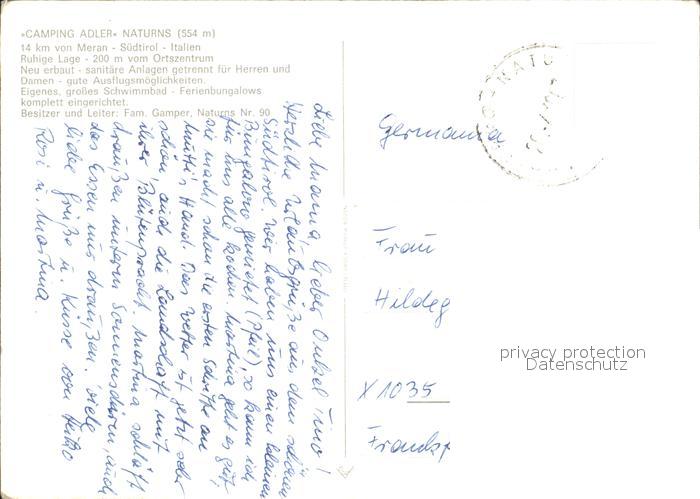 »CAMPING ADLER« NATURNS (554 m)
14 km von Meran - Südtirol - Italien
Ruhige Lage - 200 m vom Ortszentrum
Neu erbaut - sanitäre Anlagen getrennt für Herren und
Damen - gute Ausflugsmöglichkeiten.
Eigenes, großes Schwimmbad - Ferienbungalows
komplett eingerichtet.
Besitzer und Leiter: Fam. Gamper, Naturns Nr. 90
Liebe Mama, lieber Onkel Tino!
Herzliche Urlaubsgrüße aus dem schönen
Südtirol. Wir haben uns einen kleinen
Bungalow gemietet (Pfeil), so kann ich
für uns alle kochen. Martina geht es gut,
sie macht schon die ersten Schritte an
Mutti's Hand. Das Wetter ist jetzt sehr
schön, auch die Landschaft mit
ihrer Blütenpracht. Martina schläft
draußen unterm Sonnenschirm, auch
das Essen wir draußen. Viele
liebe Grüße u. Küsse von Heiko
Rosi u. Martina.
NATU
Germania
Frau
Hildeg
X 1035
Frankf
privacy protection
Datenschutz